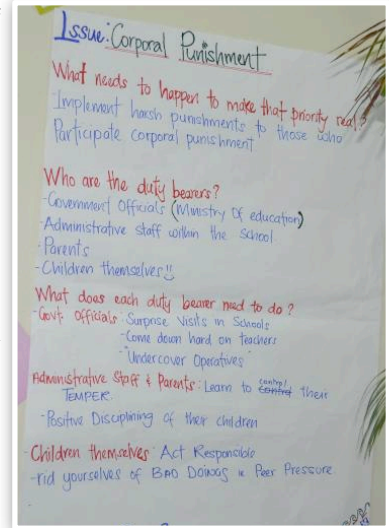 Issue: Corporal Punishment
What needs to happen to make that priority real?
-Implement harsh punishments to those who
Participate corporal punishment
Who are the duty bearers?
-Government Officials (Ministry Of education)
-Administrative staff within the School
-Parents
-Children themselves!!
What does each duty bearer need to do?
-Govt. Officials: Surprise Visits in Schools
-Come down hard on teachers
-"Undercover Operatives"
Administrative Staff & Parents: Learn to control their
TEMPER.
-Positive Disciplining of their children
-Children themselves: Act Responsible
-rid yourselves of BAD DOINGS & Peer Pressure